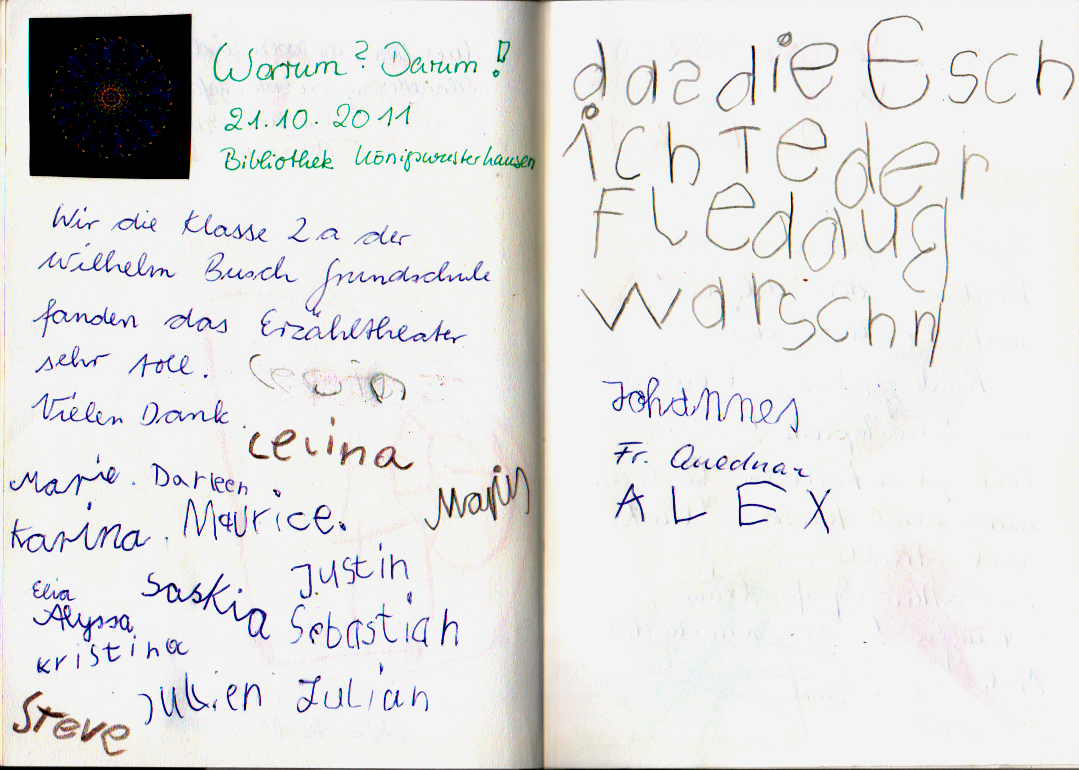 Warum? Darum!
21.10.2011
Bibliothek Königswusterhausen
Wir die Klasse 2a der
Wilhelm Busch Grundschule
fanden das Erzähltheater
sehr toll.
Vielen Dank.
Celina
Marie. Darleen.
Marijs
Karina. Maurice.
Justin
Elia
Saskia
Alyssa
Sebastian
Kristina
Julien Julian
Steve
das die Esch
ichTe der
Fledaug
war schn
Johannes
Fr. Quednau
ALEX